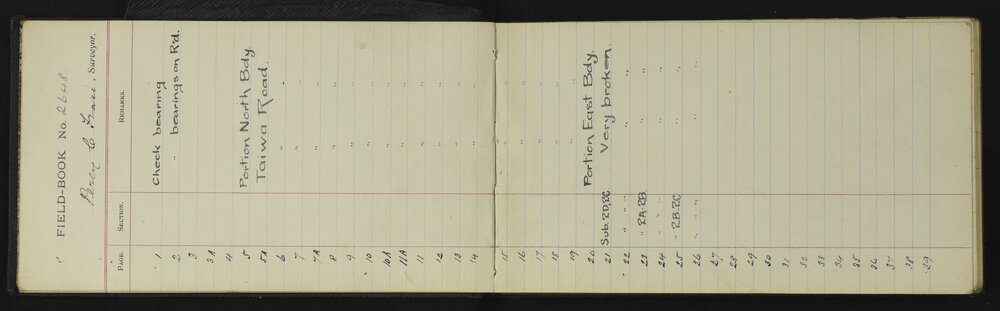 FIELD-BOOK No. 2648
Percy C. , Surveyor.
PAGE. SECTION. REMARKS.
1 Check bearing
2 " bearings on R'd.
3
3A
4
5 Portion North Bdy
5A Taiwa Road.
6 " "
7 " "
7A " "
8 " "
9 " "
10 " "
10A " "
11A " "
11 " "
12 " "
13 " "
14 " "
15 " "
16 " "
17 " "
18 " "
19 " "
20 Portion East Bdy.
21 Sub. RD, RC. Very broken.
22 " " " " "
23 " RA-RB. " "
24 " " " " "
25 " RB-RC " "
26 " " " " "
27
28
29
30
31
32
33
34
35
36
37
38
39